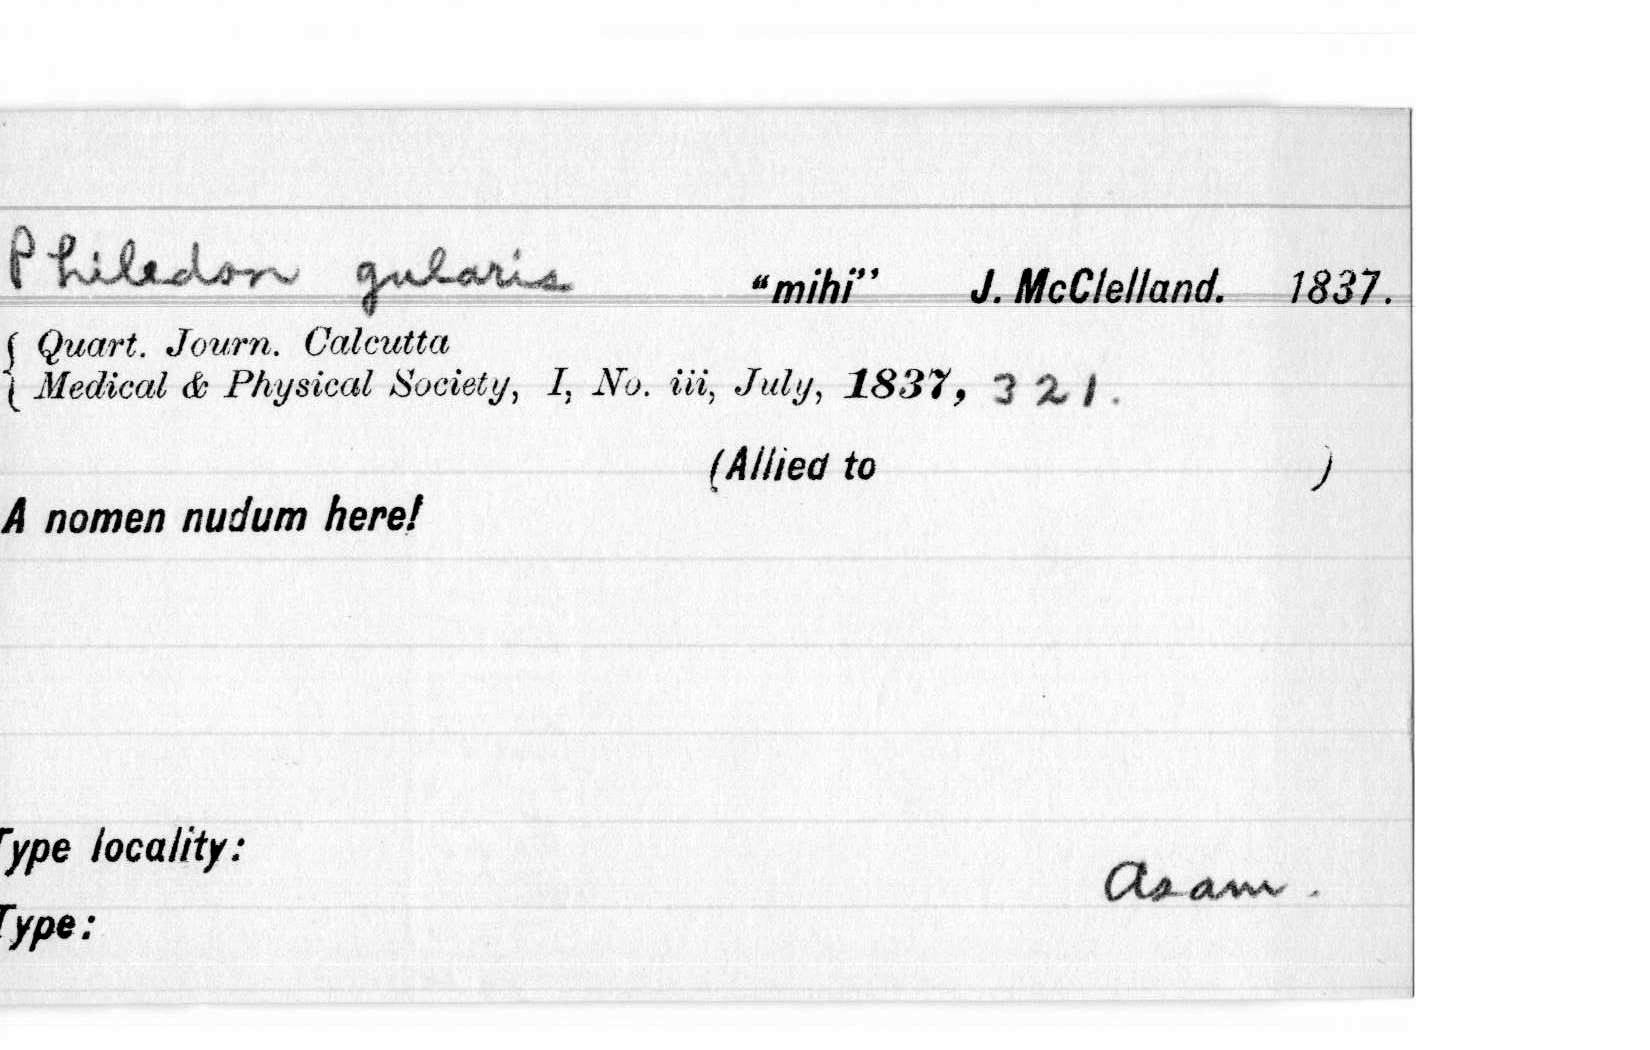 Philedon gularis "mihi" J. McClelland. 1837.
{ Quart. Journ. Calcutta
{ Medical & Physical Society, I, No. iii, July, 1837, 321.
(Allied to )
A nomen nudum here!
Type locality:
Asam.
Type: